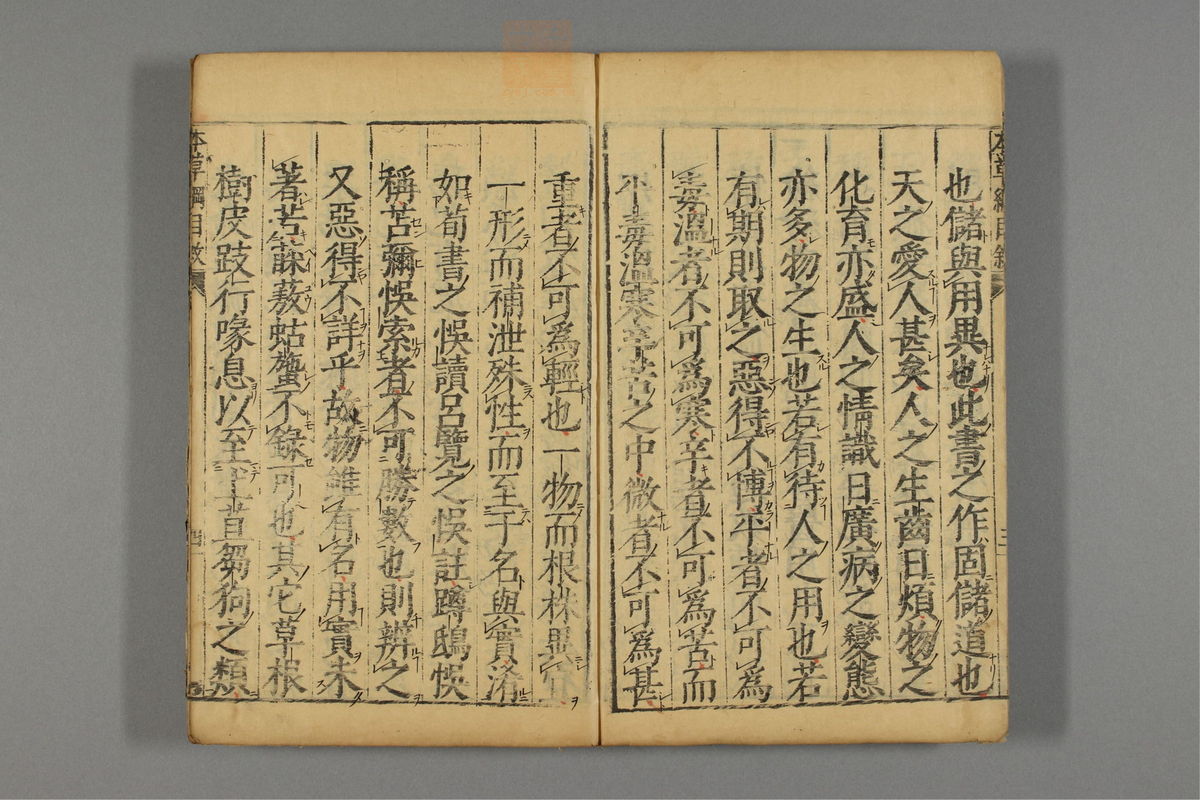 也儲與用異也此書之作固儲道也
天之愛人甚矣人之生齒日煩物之
化育亦盛人之情識日廣病之變態
亦多物之生也若有待人之用也若
有期則取之惡得不博乎者不可為
毒溫者不可為寒辛者不可為苦而
不毒溫寒辛苦之中微者不可為甚
重者不可為輕也一物而根株異
一形而補泄殊性而至于名與實淆
如荀書之悞讀呂覽之悞註蹲鴟悞
稱苦彌悞索者不可勝數也則辨之
又惡得不詳乎故物雖有名用實未
著苦蔌蛄䗪不錄可也其它草根
樹皮跂行喙息以至芻狗之類